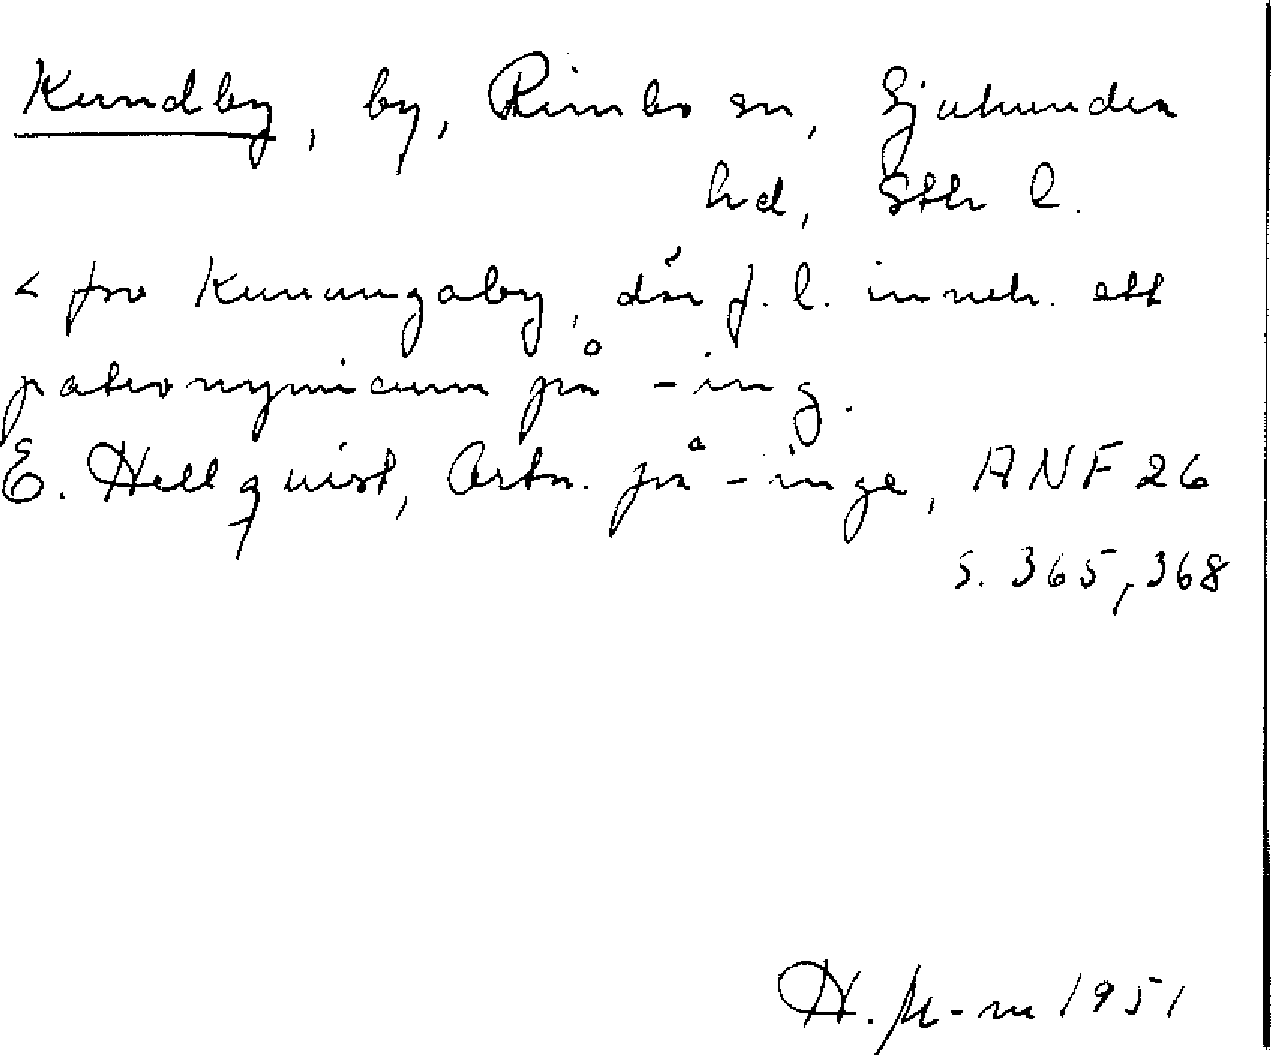 Kundby, by, Rimbo sn, Sjuhundra
hd, Sthlm l.
< fsv Kunungaby, där f. l. inneh. ett
patronymicum på -ing.
E. Hellquist, Ortn. på -inge, ANF 26
s. 365, 368
H. 1951